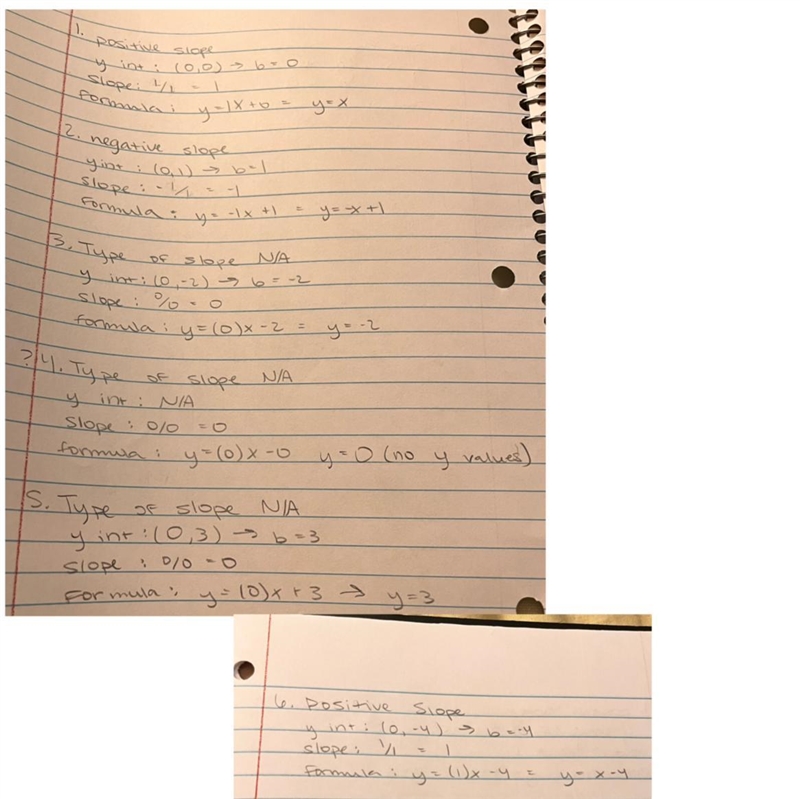 1. positive slope
y int: (0,0) → b=0
Slope: 1/1 = 1
Formula: y=1x+0 = y=x
2. negative slope
y int: (0,1) → b=1
Slope: -1/1 = -1
Formula: y=-1x+1 = y=-x+1
3. Type of slope N/A
y int: (0,-2) → b=-2
Slope: 0/0 = 0
formula: y=(0)x-2 = y=-2
? 4. Type of slope N/A
y int: N/A
Slope: 0/0 = 0
formula: y=(0)x-0 y=0 (no y values)
5. Type of slope N/A
y int: (0,3) → b=3
Slope: 0/0 = 0
Formula: y=(0)x+3 → y=3
6. Positive Slope
y int: (0,-4) → b=-4
Slope: 1/1 = 1
Formula: y=(1)x-4 = y=x-4